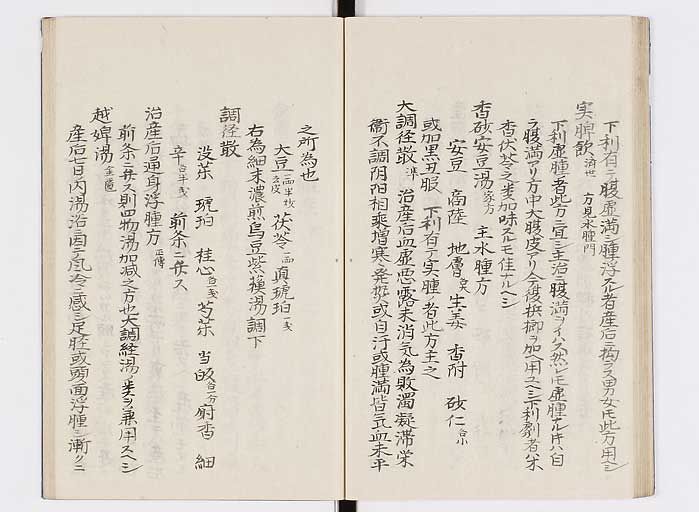 下利有テ腹虚満シ腫浮スル者産后ニ拘ラス男女トモ此方用ヘシ
実脾飲 済世 方見水腫門
下利虚腫ノ者此方ニ宜シ主治ニ腹満ヲイハ然レトモ虚腫ナルトキハ自
ラ腹満アリ方中大腹皮アリ今後檳榔ヲ加ヘ用スヘシ下利劇者ハ米
杏伏苓之类加味スルモ佳ナルヘシ
香砂安豆湯 家方 主水腫方
安豆 商陸 地膚 各大 生姜 香附 砂仁 各小
或加黒丑服 下利有テ実腫ノ者此方主之
大調経散 準 治産后血虚悪露未消气為敗濁凝滞栄
衛不調阴阳相乗増寒発熱或自汗或腫満皆气血未平
之所為也
大豆 一两半炒去皮 茯苓 一两 真琥珀 一戔
右為細末濃煎烏豆紫蘓湯調下
調経散
没茱 琥珀 桂心 各一戔 芍茱 当皈 各一分 麝香 細
辛 各半戔 前条ニ弁ス
治産后遍身浮腫方 正傳
前条ニ弁ス則四物湯加减之方也大調経湯ノ类ヲ兼用スヘシ
越婢湯 金匱
産后七日内湯浴ニ因テ風冷ニ感シ足脛或頭面浮腫シ漸クニ